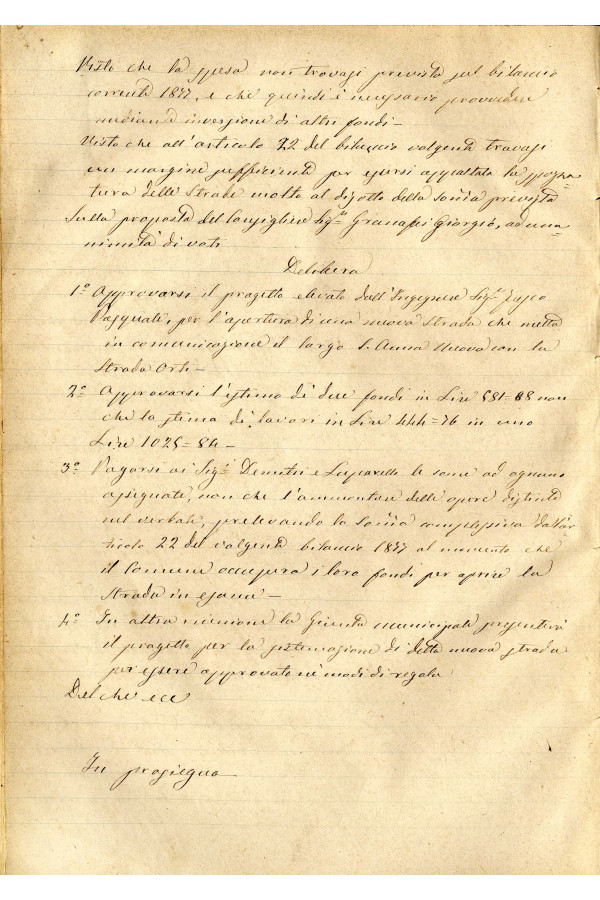 Visto che la spesa non trovasi prevista sul bilancio
corrente 1877, e che quindi è necessario provvedere
mediante inversione di altri fondi –
Visto che all'articolo 22 del bilancio volgente trovasi
un margine sufficiente per essersi appaltata la spazza-
tura delle Strade molto al disotto della somma prevista
Sulla proposta del Consigliere Sig.r Granafei Giorgio, ad una-
nimità di voti
Delibera
1.° Approvarsi il progetto elevato dall'Ingegnere Sig.r
Pasquale, per l'apertura di una nuova Strada che metta
in comunicazione il largo S. Anna Nuova con la
Strada Orti –
2.° Approvarsi l'estimo di due fondi in Lire 581=08 non
che la stima di lavori in Lire 444=76 in uno
Lire 1025=84 –
3.° Pagarsi ai Sig.i Demitri e le some ad ognuno
assegnate, non che l'ammontare delle opere distinte
nel verbale, prelevando la somma complessiva dall'ar-
ticolo 22 del volgente bilancio 1877 al momento che
il Comune occuperà i loro fondi per aprire la
Strada in esame –
4.° In altra riunione la Giunta municipale presenterà
il progetto per la sistemazione di detta nuova strada
per essere approvato nè modi di regola
Del che ecc
In prosieguo